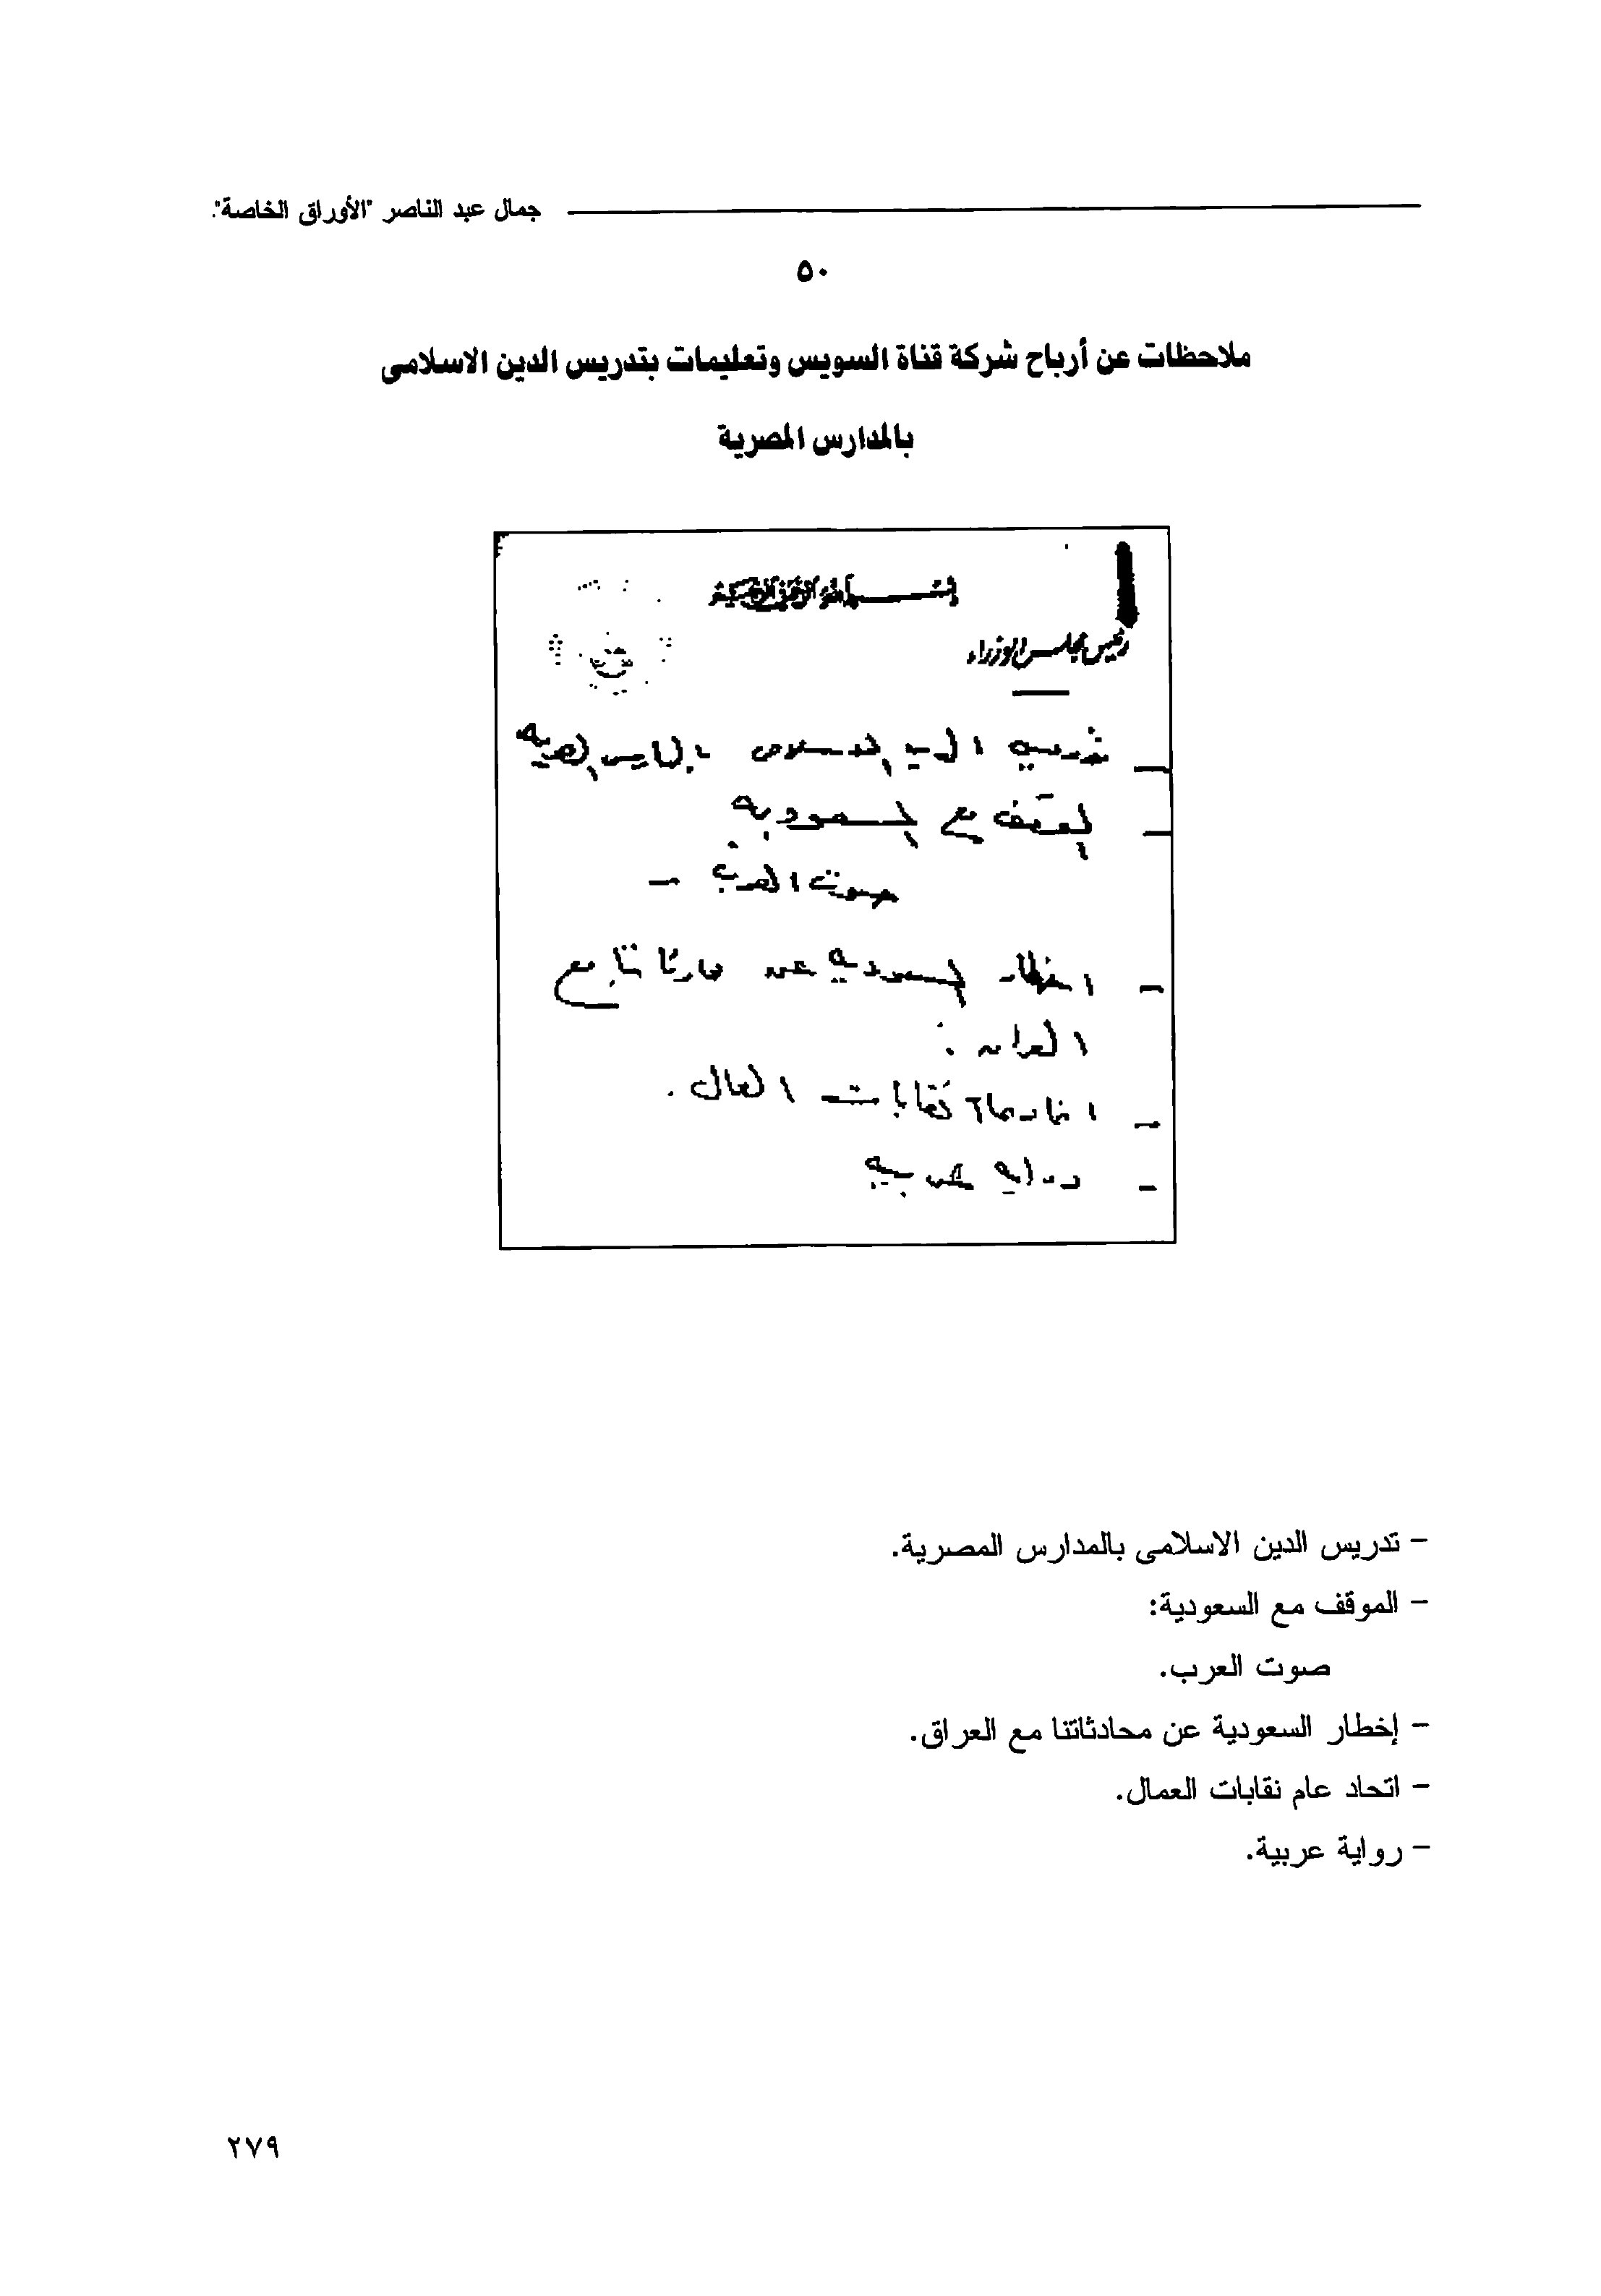 جمال عبد الناصر "الأوراق الخاصة".
٥٠
ملاحظات عن أرباح شركة قناة السويس وتعليمات بتدريس الدين الاسلامى
بالمدارس المصرية
بسم الله الرحمن الرحيم
رئيس مجلس الوزراء
— تدريس الدين الاسلامى بالمدارس المصريه
— الموقف مع السعوديه
صوت العرب —
— اخطار السعوديه عن محادثاتنا مع
العراق .
— اتحاد عام نقابات العمال .
— روايه عربيه
– تدريس الدين الاسلامى بالمدارس المصرية.
– الموقف مع السعودية:
صوت العرب.
– إخطار السعودية عن محادثاتنا مع العراق.
– اتحاد عام نقابات العمال.
– رواية عربية.
٢٧٩